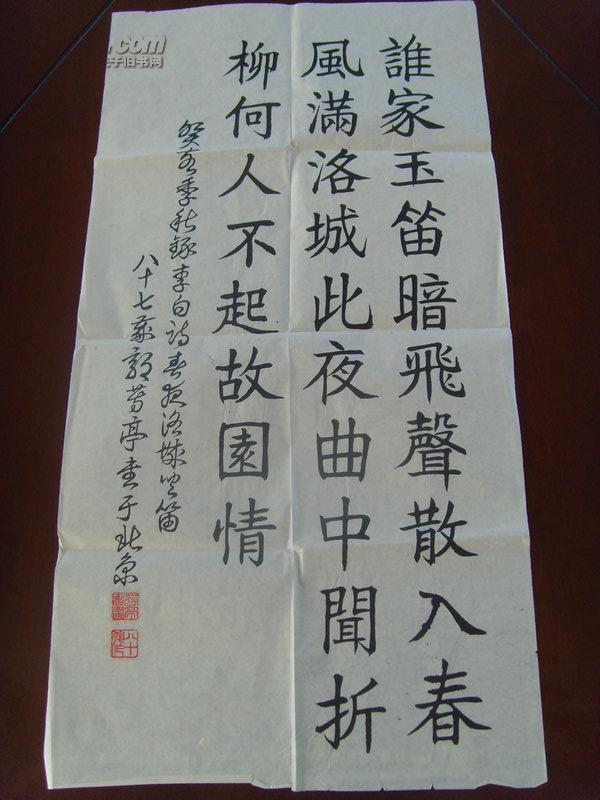 誰家玉笛暗飛聲散入春
風滿洛城此夜曲中聞折
柳何人不起故園情
癸亥季秋録李白詩春夜洛城聞笛
八十七歲郭亭書于北京
.com
夫子旧书网